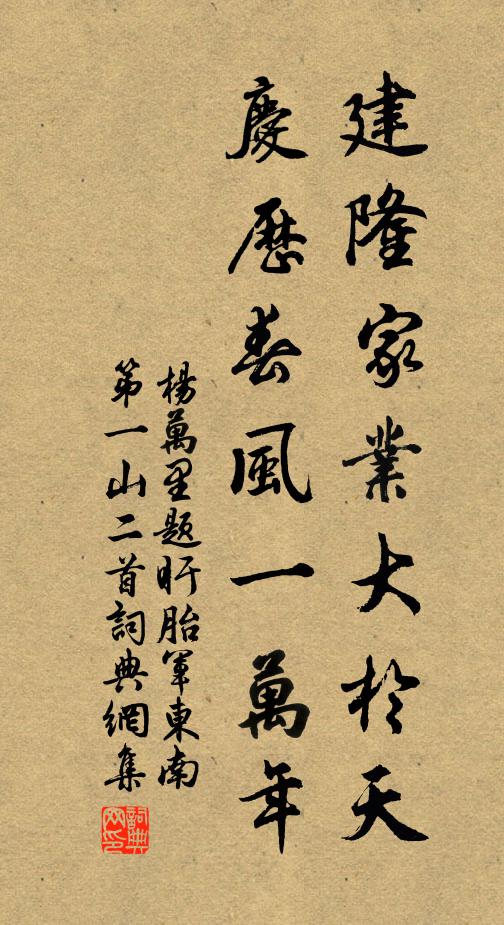 建隆家業大於天
慶歷春風一萬年
楊萬里題盱眙軍東南
第一山二首詞典網集
詞典网印